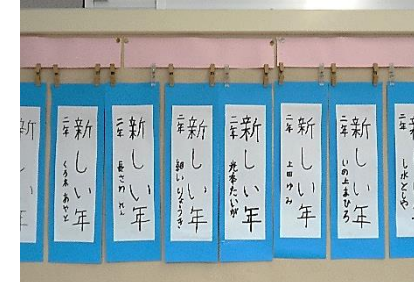 新しい年
二年 くろ木 あやと
新しい年
二年 長さわ れん
新しい年
二年 細い りょうき
新しい年
二年
新しい年
二年 上田 ゆみ
新しい年
二年 いの上 まひろ
新
し水 としや